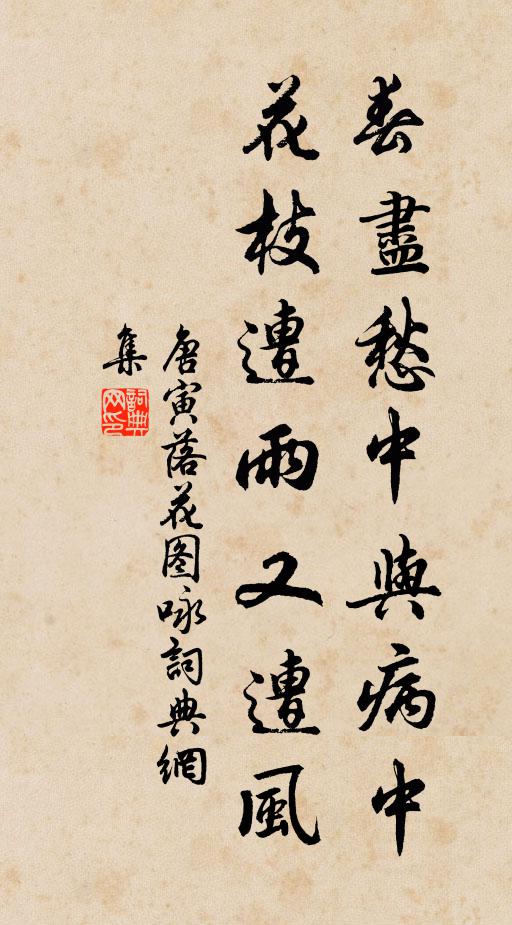 春盡愁中與病中
花枝遭雨又遭風
唐寅落花图咏詞典網
集
詞典网印